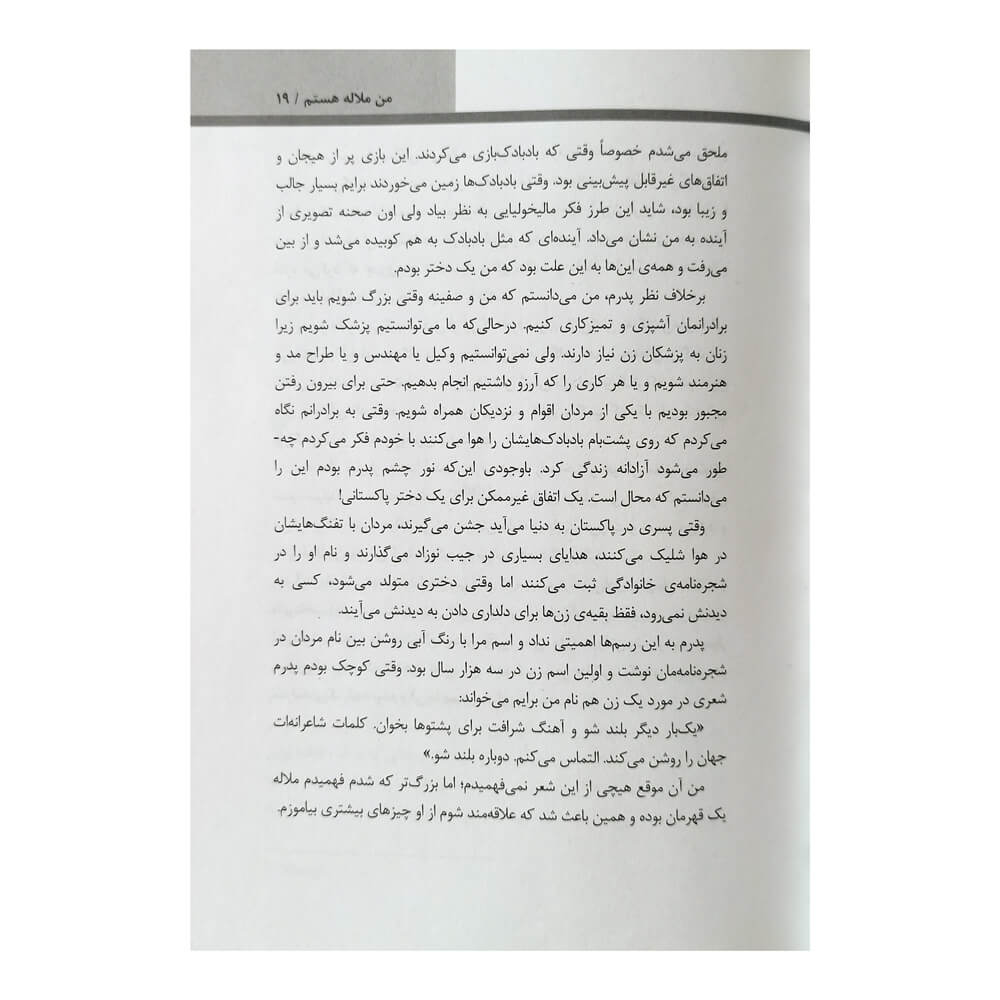 من ملاله هستم / ۱۹
ملحق می‌شدم خصوصاً وقتی که بادبادک‌بازی می‌کردند. این بازی پر از هیجان و
اتفاق‌های غیرقابل پیش‌بینی بود. وقتی بادبادک‌ها زمین می‌خوردند برایم بسیار جالب
و زیبا بود، شاید این طرز فکر مالیخولیایی به نظر بیاد ولی اون صحنه تصویری از
آینده به من نشان می‌داد. آینده‌ای که مثل بادبادک به هم کوبیده می‌شد و از بین
می‌رفت و همه‌ی این‌ها به این علت بود که من یک دختر بودم.
برخلاف نظر پدرم، من می‌دانستم که من و صفینه وقتی بزرگ شویم باید برای
برادرانمان آشپزی و تمیزکاری کنیم. درحالی‌که ما می‌توانستیم پزشک شویم زیرا
زنان به پزشکان زن نیاز دارند. ولی نمی‌توانستیم وکیل یا مهندس و یا طراح مد و
هنرمند شویم و یا هر کاری را که آرزو داشتیم انجام بدهیم. حتی برای بیرون رفتن
مجبور بودیم با یکی از مردان اقوام و نزدیکان همراه شویم. وقتی به برادرانم نگاه
می‌کردم که روی پشت‌بام بادبادک‌هایشان را هوا می‌کنند با خودم فکر می‌کردم چه-
طور می‌شود آزادانه زندگی کرد. باوجودی این‌که نور چشم پدرم بودم این را
می‌دانستم که محال است. یک اتفاق غیرممکن برای یک دختر پاکستانی!
وقتی پسری در پاکستان به دنیا می‌آید جشن می‌گیرند، مردان با تفنگ‌هایشان
در هوا شلیک می‌کنند، هدایای بسیاری در جیب نوزاد می‌گذارند و نام او را در
شجره‌نامه‌ی خانوادگی ثبت می‌کنند اما وقتی دختری متولد می‌شود، کسی به
دیدنش نمی‌رود، فقط بقیه‌ی زن‌ها برای دلداری دادن به دیدنش می‌آیند.
پدرم به این رسم‌ها اهمیتی نداد و اسم مرا با رنگ آبی روشن بین نام مردان در
شجره‌نامه‌مان نوشت و اولین اسم زن در سه هزار سال بود. وقتی کوچک بودم پدرم
شعری در مورد یک زن هم نام من برایم می‌خواند:
«یک‌بار دیگر بلند شو و آهنگ شرافت برای پشتوها بخوان. کلمات شاعرانه‌ات
جهان را روشن می‌کند. التماس می‌کنم. دوباره بلند شو.»
من آن موقع هیچی از این شعر نمی‌فهمیدم؛ اما بزرگ‌تر که شدم فهمیدم ملاله
یک قهرمان بوده و همین باعث شد که علاقه‌مند شوم از او چیزهای بیشتری بیاموزم.